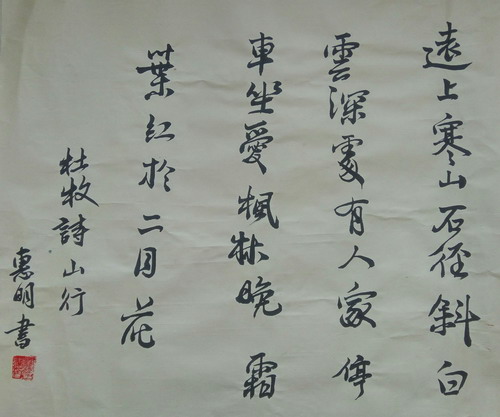 遠上寒山石径斜白
雲深處有人家停
車坐愛楓林晚霜
葉红於二月花
杜牧詩山行
惠明書